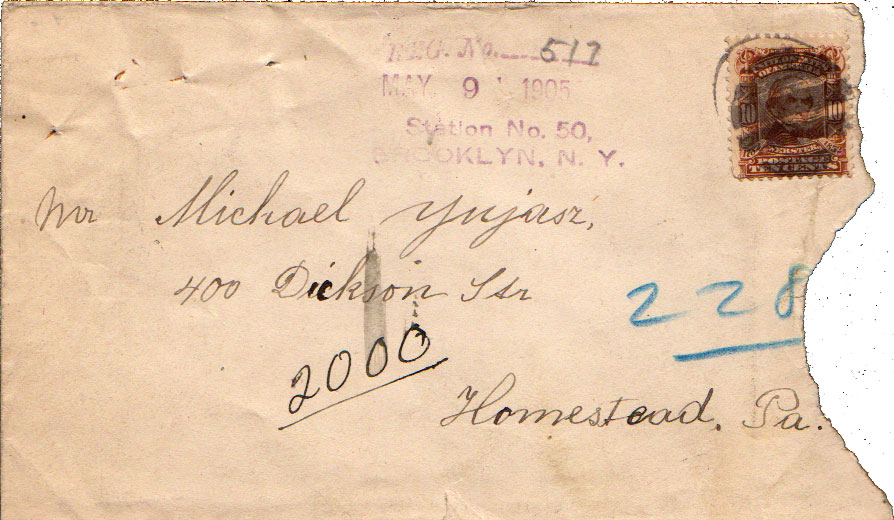 REG. No. 517
MAY 9 1905
Station No. 50,
BROOKLYN, N. Y.
10 10
POSTAGE
TEN CENTS
Mr Michael Yujasz,
400 Dickson Str
228
2000
Homestead, Pa.